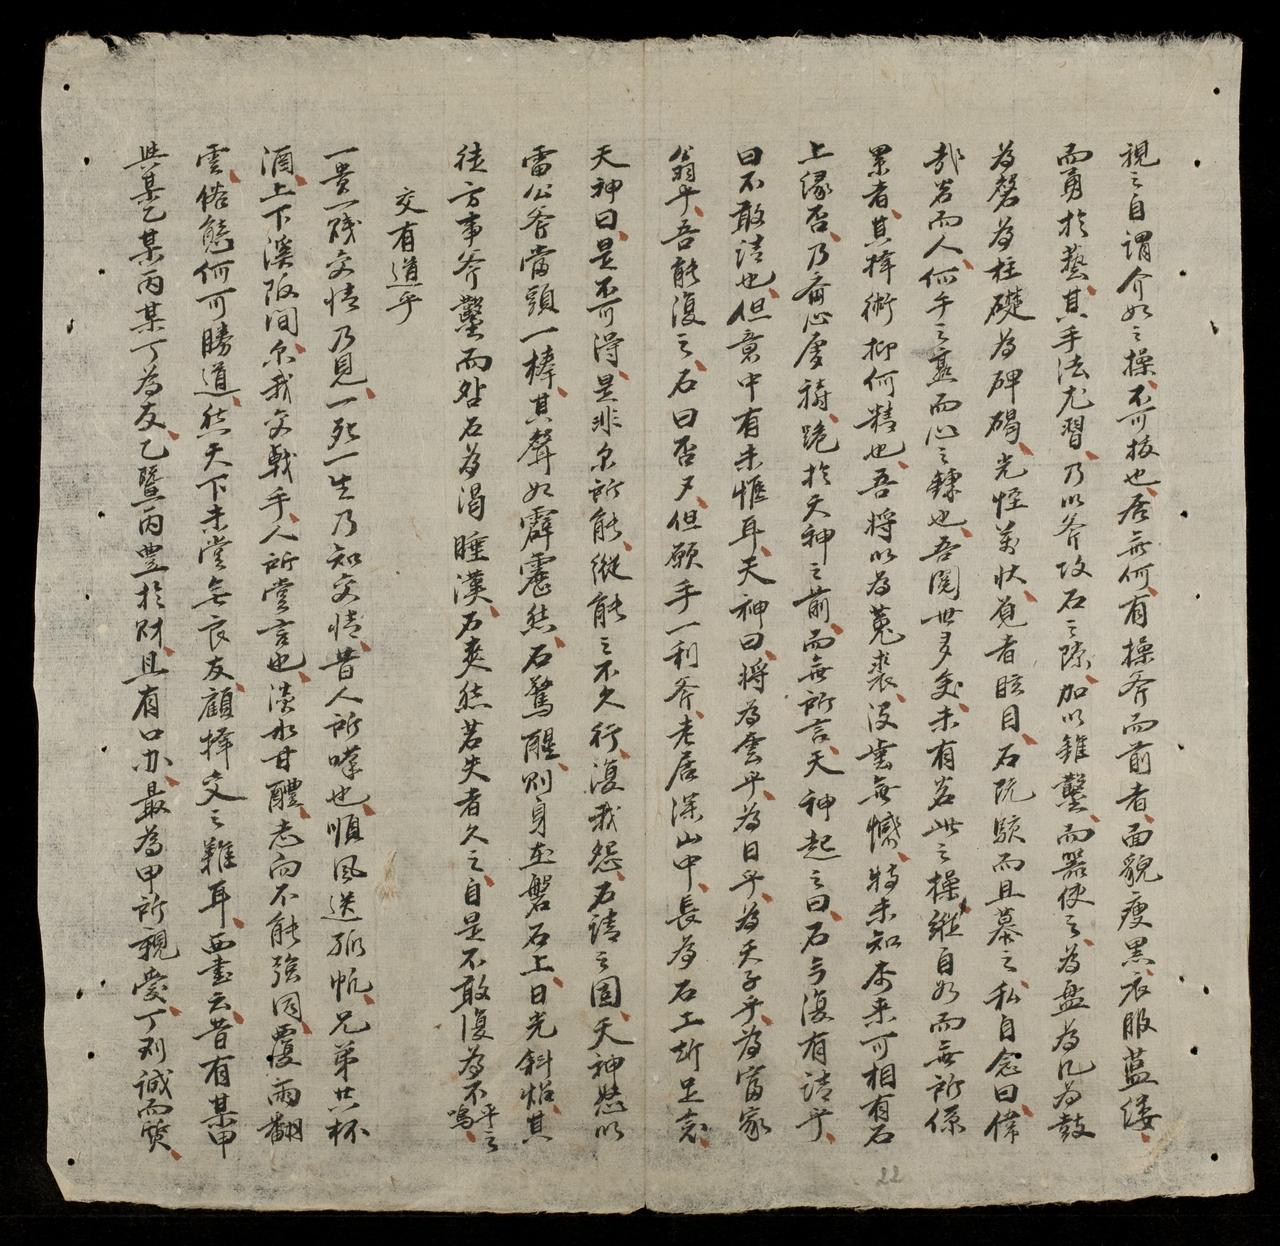 視之自謂介如之操不可拔也居無何有操斧而前者面貌瘦黑衣服藍縷
而勇於藝其手法尤習乃以斧攻石之隙加以錐鑿而器使之為盤為几為鼓
為磬為柱礎為碑碣光怪萬狀覓者眩目石阮駭而且慕之私自念曰偉
哉若而人何手之甚而心之鍊也吾閱世多矣未有若此之操縱自如而無所係
累者其擇術抑何精也吾將以為菟裘沒雲無憾特未知本來可相有石
上緣否乃齋心虔禱跪於天神之前而無所言天神起之曰石乎復有請乎
曰不敢請也但意中有未愜耳天神曰將為雲乎為日乎為天子乎為富家
翁乎吾能復之石曰否否但願手一利斧老居深山中長為石工斯足矣
天神曰是不可得是非尔所能縱能之不久行復我怨石請之固天神怒以
雷公斧當頭一棒其聲如霹靂然石驚醒則身在磐石上日光斜焰其
徒方事斧鑿而呰石為渴睡漢石爽然若失者久之自是不敢復為不平之鳴
交有道乎
一貴一賤交情乃見一死一生乃知交情昔人所嘆也順風送孤帆兄弟共杯
酒上下溪阪間尔我交戟手人所嘗言也淡水甘醴志向不能強同覆雨翻
雲俗態何可勝道然天下未嘗無良友顧擇交之難耳西書云昔有某甲
與某乙某丙某丁為友乙暨丙豊於財且有口办最為甲所親愛丁則誠而質
22